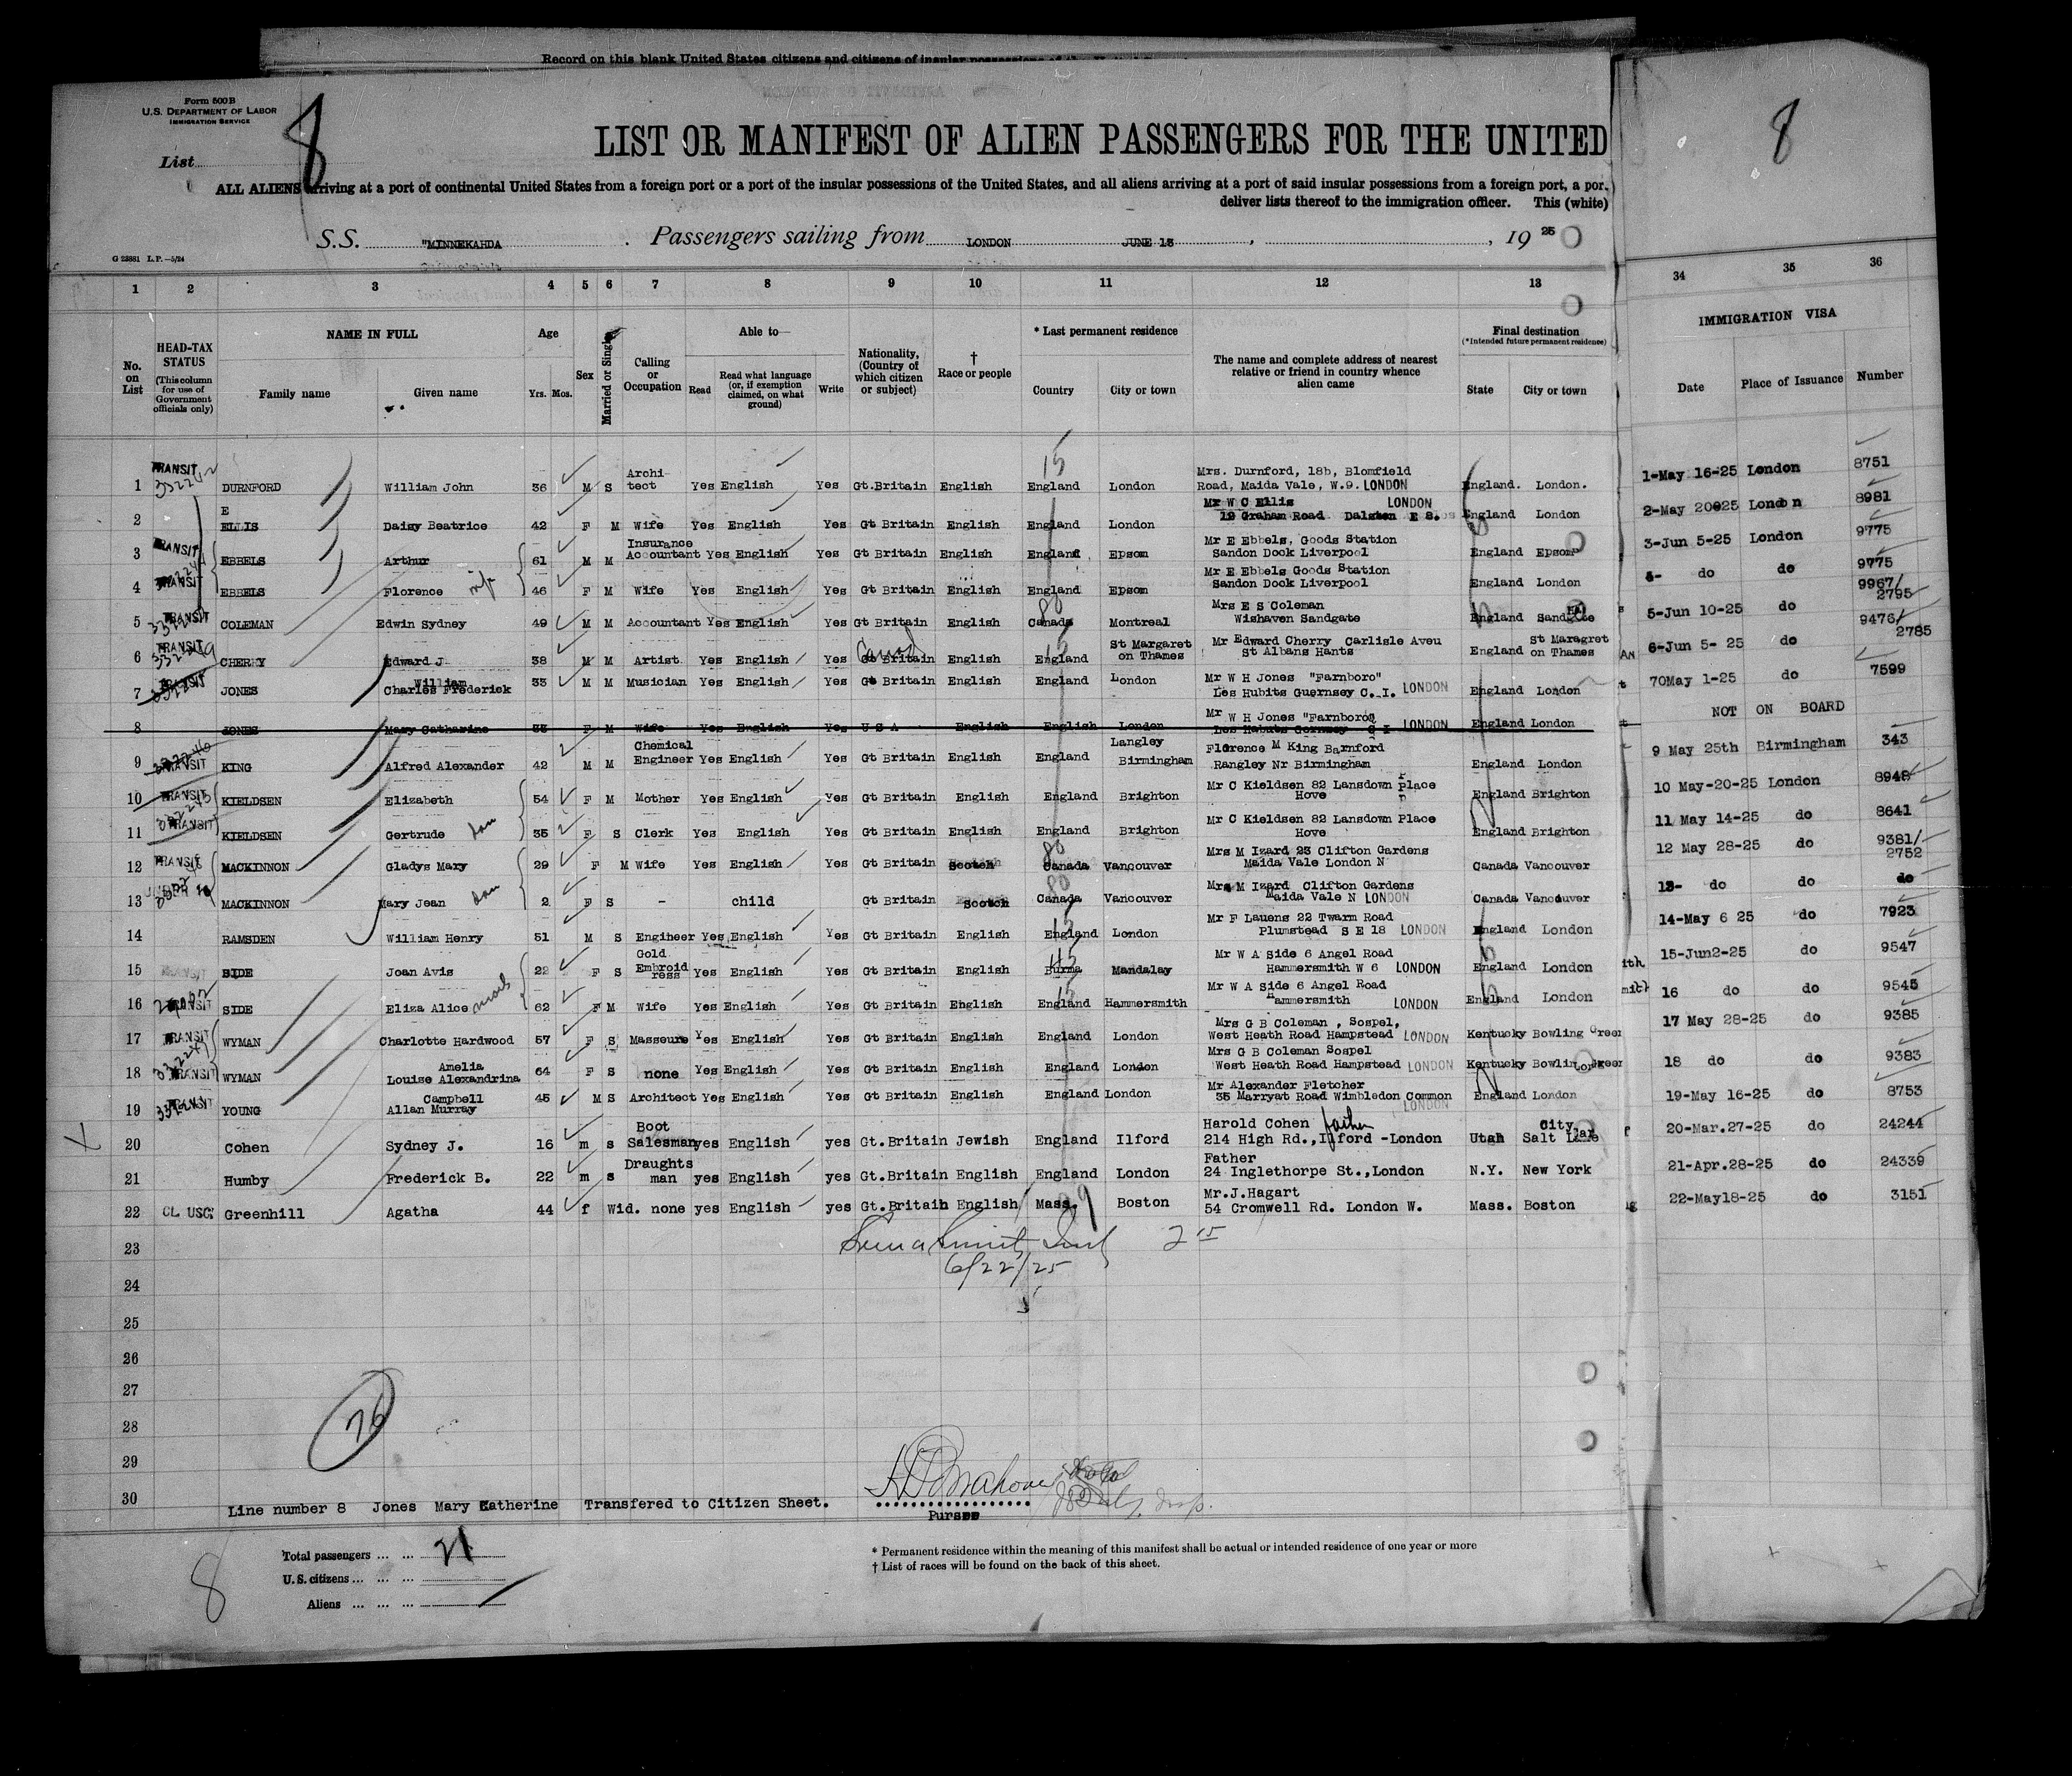 Record on this blank United States citizens and citizens of insular possessions of the
Form 500 B
U.S. DEPARTMENT OF LABOR
IMMIGRATION SERVICE
List 8
8
LIST OR MANIFEST OF ALIEN PASSENGERS FOR THE UNITED
ALL ALIENS arriving at a port of continental United States from a foreign port or a port of the insular possessions of the United States, and all aliens arriving at a port of said insular possessions from a foreign port, a por
deliver lists thereof to the immigration officer. This (white)
S.S. "MINNEKAHDA. Passengers sailing from LONDON JUNE 13, 1925
G 23881 L.P.—5/24
1 2 3 4 5 6 7 8 9 10 11 12 13 34 35 36
No. on List
HEAD-TAX STATUS (This column for use of Government officials only)
NAME IN FULL Family name Given name
Age Yrs. Mos.
Sex
Married or Single
Calling or Occupation
Able to— Read Read what language (or, if exemption claimed, on what ground) Write
Nationality, (Country of which citizen or subject)
† Race or people
* Last permanent residence Country City or town
The name and complete address of nearest relative or friend in country whence alien came
Final destination (*Intended future permanent residence) State City or town
IMMIGRATION VISA Date Place of Issuance Number
1 TRANSIT DURNFORD William John 36 M S Architect Yes English Yes Gt.Britain English England London Mrs. Durnford, 18b, Blomfield Road, Maida Vale, W.9. LONDON England. London. 1-May 16-25 London 8751
2 E ELLIS Daisy Beatrice 42 F M Wife Yes English Yes Gt Britain English England London Mr W C Ellis LONDON 19 Graham Road Dalston E 8. England London 2-May 20025 London 8981
3 TRANSIT EBBELS Arthur 61 M M Insurance Accountant Yes English Yes Gt Britain English England Epsom Mr E Ebbels, Goods Station Sandon Dock Liverpool England Epsom 3-Jun 5-25 London 9775
4 TRANSIT EBBELS Florence wife 46 F M Wife Yes English Yes Gt Britain English England Epsom Mr E Ebbels Goods Station Sandon Dock Liverpool England London 4- do do 9775
5 TRANSIT COLEMAN Edwin Sydney 49 M M Accountant Yes English Yes Gt Britain English Canada Montreal Mrs E S Coleman Wishaven Sandgate England Sandgate 5-Jun 10-25 do 9967/2795
6 TRANSIT CHERRY Edward J 38 M M Artist Yes English Yes Gt Britain Canad English England St Margaret on Thames Mr Edward Cherry Carlisle Aveu St Albans Hants England St Maragret on Thames 6-Jun 5- 25 do 9476/2785
7 TRANSIT JONES William Charles Frederick 33 M M Musician Yes English Yes Gt Britain English England London Mr W H Jones "Farnboro" Les Hubits Guernsey C.I. LONDON England London 70May 1-25 do 7599
8 JONES Mary Catharine 33 F M Wife Yes English Yes U S A English English London Mr W H Jones "Farnboro" Les Habuts Gornsey C I LONDON England London NOT ON BOARD
9 TRANSIT KING Alfred Alexander 42 M M Chemical Engineer Yes English Yes Gt Britain English England Langley Birmingham Florence M King Barnford Rangley Nr Birmingham England London 9 May 25th Birmingham 343
10 TRANSIT KIELDSEN Elizabeth 54 F M Mother Yes English Yes Gt Britain English England Brighton Mr C Kieldsen 82 Lansdown place Hove England Brighton 10 May-20-25 London 8948
11 TRANSIT KIELDSEN Gertrude dau 35 F S Clerk Yes English Yes Gt Britain English England Brighton Mr C Kieldsen 82 Lansdown Place Hove England Brighton 11 May 14-25 do 8641
12 TRANSIT MACKINNON Gladys Mary 29 F M Wife Yes English Yes Gt Britain Scotch Canada Vancouver Mrs M Izard 23 Clifton Gardens Maida Vale London N Canada Vancouver 12 May 28-25 do 9381/2752
13 UNDER 16 MACKINNON Mary Jean dau 2 F S - child Gt Britain Scotch Canada Vancouver Mrs M Izard Clifton Gardens Maida Vale N LONDON Canada Vancouver 13- do do do
14 RAMSDEN William Henry 51 M S Engineer Yes English Yes Gt Britain English England London Mr F Lauens 22 Twarm Road Plumstead S E 18 LONDON England London 14-May 6 25 do 7923
15 TRANSIT SIDE Joan Avis 22 F S Gold Embroidress Yes English Yes Gt Britain English Burma Mandalay Mr W A Side 6 Angel Road Hammersmith W 6 LONDON England London 15-Jun2-25 do 9547
16 TRANSIT SIDE Eliza Alice 62 F M Wife Yes English Yes Gt Britain English England Hammersmith Mr W A Side 6 Angel Road Hammersmith LONDON England London 16 do do 9545
17 TRANSIT WYMAN Charlotte Hardwood 57 F S Masseure Yes English Yes Gt Britain English England London Mrs G B Coleman , Sospel, West Heath Road Hampstead LONDON Kentucky Bowling Green 17 May 28-25 do 9385
18 TRANSIT WYMAN Amelia Louise Alexandrina 64 F S none Yes English Yes Gt Britain English England London Mrs G B Coleman Sospel West Heath Road Hampstead LONDON Kentucky Bowling green 18 do do 9383
19 TRANSIT YOUNG Campbell Allan Murray 45 M S Architect Yes English Yes Gt Britain English England London Mr Alexander Fletcher 35 Marryat Road Wimbledon Common LONDON England London 19-May 16-25 do 8753
20 Cohen Sydney J. 16 m s Boot Salesman yes English yes Gt.Britain Jewish England Ilford Harold Cohen father 214 High Rd.,Ilford -London Utah Salt Lake City 20-Mar.27-25 do 24244
21 Humby Frederick B. 22 m s Draughts man yes English yes Gt.Britain English England London Father 24 Inglethorpe St.,London N.Y. New York 21-Apr.28-25 do 24339
22 CL USC Greenhill Agatha 44 f Wid. none yes English yes Gt.Britain English Mass. Boston Mr.J.Hagart 54 Cromwell Rd. London W. Mass. Boston 22-May18-25 do 3151
23
6/22/25
24
25
26
27
28
29
30
26
Line number 8 Jones Mary Katherine Transfered to Citizen Sheet.
Purser
Total passengers ... ... 21
U.S. citizens ... ... ...
Aliens ... ... ...
8
* Permanent residence within the meaning of this manifest shall be actual or intended residence of one year or more
† List of races will be found on the back of this sheet.